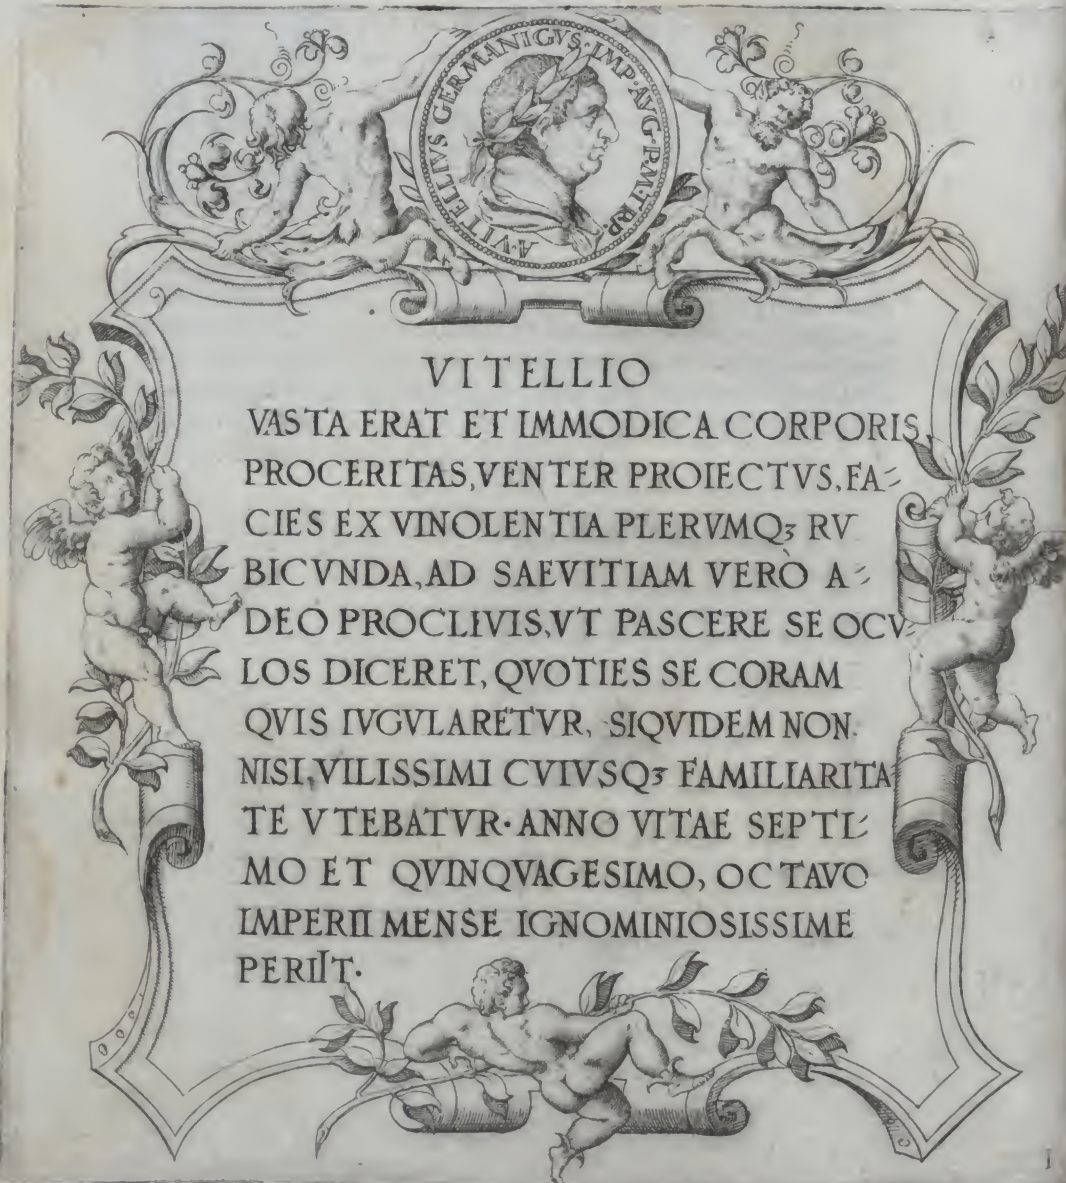 A·VITELLIVS GERMANICVS·IMP·AVG·P·M·TRP·
VITELLIO
VASTA ERAT ET IMMODICA CORPORIS
PROCERITAS, VENTER PROIECTVS, FA-
CIES EX VINOLENTIA PLERVMQꝫ RV
BICVNDA, AD SAEVITIAM VERÒ A-
DEO PROCLIVIS, VT PASCERE SE OCV-
LOS DICERET, QVOTIES SE CORAM
QVIS IVGVLARETVR, SIQVIDEM NON
NISI, VILISSIMI CVIVSQꝫ FAMILIARITA
TE VTEBATVR· ANNO VITAE SEPTI-
MO ET QVINQVAGESIMO, OCTAVO
IMPERII MENSE IGNOMINIOSISSIME
PERIIT·